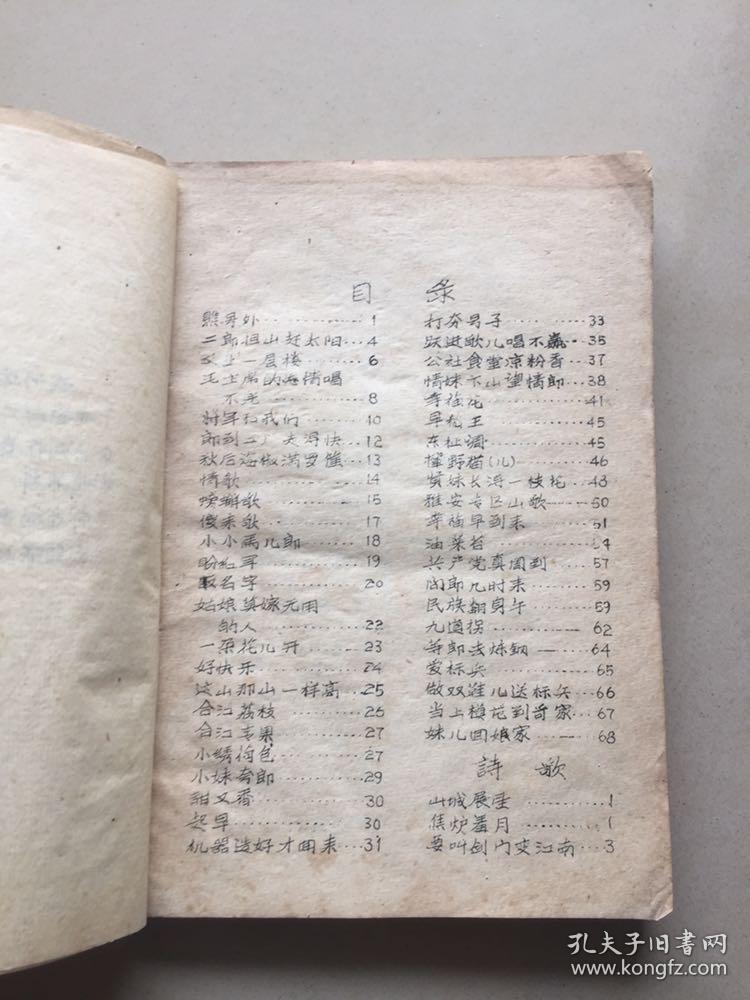 目 录
1
二郎担山赶太阳 4
又上一层楼 6
毛主席的恩情唱
不完 8
将军和我们 10
郎到工厂夫得快 12
秋后海椒满罗筐 13
情歌 14
螃蟹歌 15
傻末歌 17
小小禹儿郎 18
盼红军 19
取名字 20
姑娘莫嫁无用
的人 22
一朵花儿开 23
好快乐 24
这山那山一样高 25
合江荔枝 26
合江苹果 27
小绣荷包 27
小妹夸郎 29
甜又香 30
起早 30
机器造好才回来 31
打夯号子 33
跃进歌儿唱不赢 35
公社食堂凉粉香 37
情妹下山望情郎 38
幸福花 41
旱龙王 45
调 45
撵野猫(儿) 46
贤妹长得一枝花 48
雅安专区山歌 50
幸福早到来 51
油菜苔 54
共产党真周到 57
问郎几时来 59
民族翻身午 59
九道拐 62
等郎去炼钢 64
爱标兵 65
做双鞋儿送标兵 66
当上模范到奇家 67
妹儿回娘家 68
詩 歌
山城展望 1
焦炉羞月 1
要叫剑门变江南 3
孔夫子旧書网
www.kongfz.com